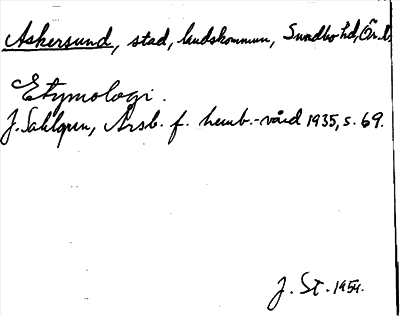 Askersund, stad, landskommun, Sundbo hd, Ör. l.
Etymologi.
J. Sahlgren, Årsb. f. hemb.-vård 1935, s. 69.
J. St. 1954.